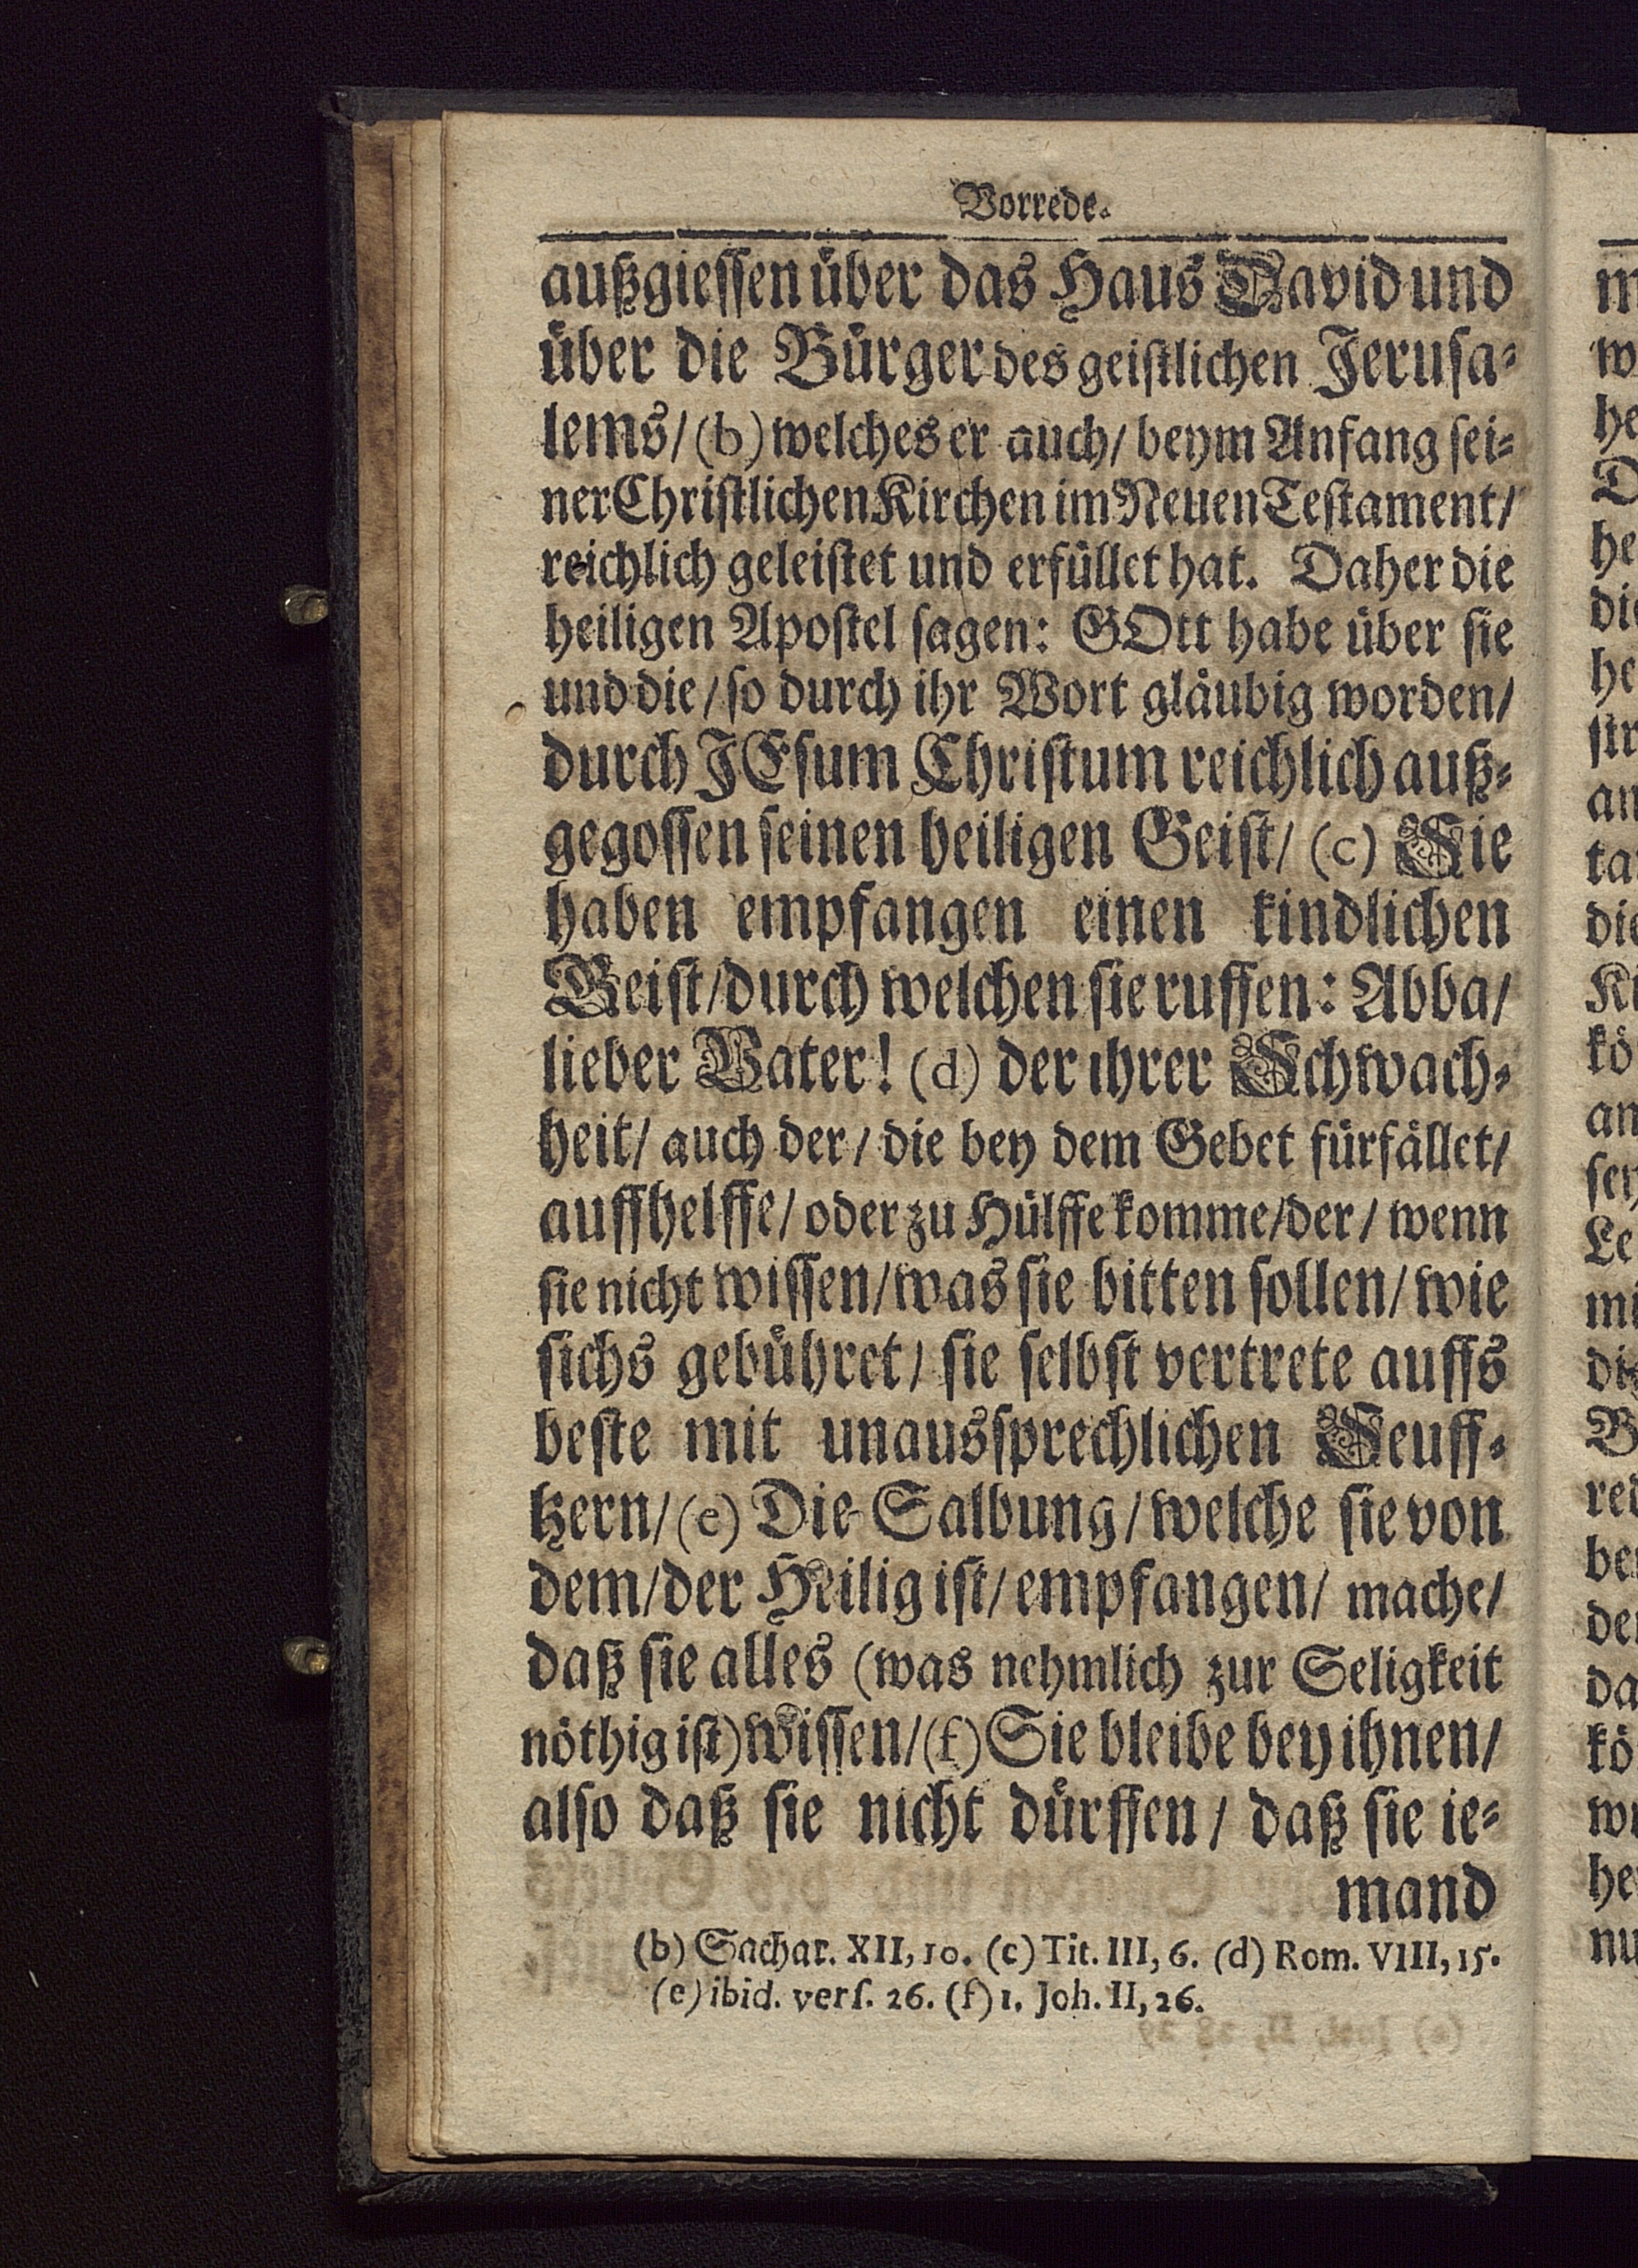 Vorrede.
außgiessen über das Haus David und
über die Bürger des geistlichen Jerusa-
lems/ (b) welches er auch/ beym Anfang sei-
ner Christlichen Kirchen im Neuen Testament/
reichlich geleistet und erfüllet hat. Daher die
heiligen Apostel sagen: GOtt habe über sie
und die/ so durch ihr Wort gläubig worden/
durch JEsum Christum reichlich auß-
gegossen seinen heiligen Geist/ (c) Sie
haben empfangen einen kindlichen
Geist/ durch welchen sie ruffen: Abba/
lieber Vater! (d) der ihrer Schwach-
heit/ auch der/ die bey dem Gebet fürfället/
auffhelffe/ oder zu Hülffe komme/ der/ wenn
sie nicht wissen/ was sie bitten sollen/ wie
sichs gebühret/ sie selbst vertrete auffs
beste mit unaussprechlichen Seuff-
tzern/ (e) Die Salbung/ welche sie von
dem/ der Heilig ist/ empfangen/ mache/
daß sie alles (was nehmlich zur Seligkeit
nöthig ist) wissen/ (f) Sie bleibe bey ihnen/
also daß sie nicht dürffen/ daß sie ie-
mand
(b) Sachar. XII, 10. (c) Tit. III, 6. (d) Rom. VIII, 15.
(e) ibid. vers. 26. (f) 1. Joh. II, 26.